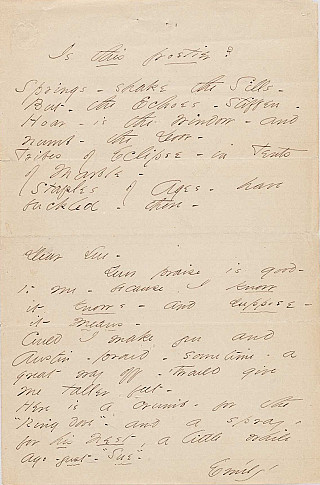 Is this frostier?
Springs - shake the Sills -
But - the Echoes - stiffen -
Hoar - is the Window - and
numb - the Door -
Tribes of Eclipse - in Tents
of Marble -
Staples of Ages - have
buckled - there -
Dear Sue -
Your praise is good -
to me - because I know
it knows - and suppose -
it means -
Could I make you and
Austin - proud - sometime - a
great way off - 'twould give
me taller feet -
Here is a crumb - for the
"Ring dove" - and a spray -
for his Nest, a little while
ago - just - "Sue" -
Emily -